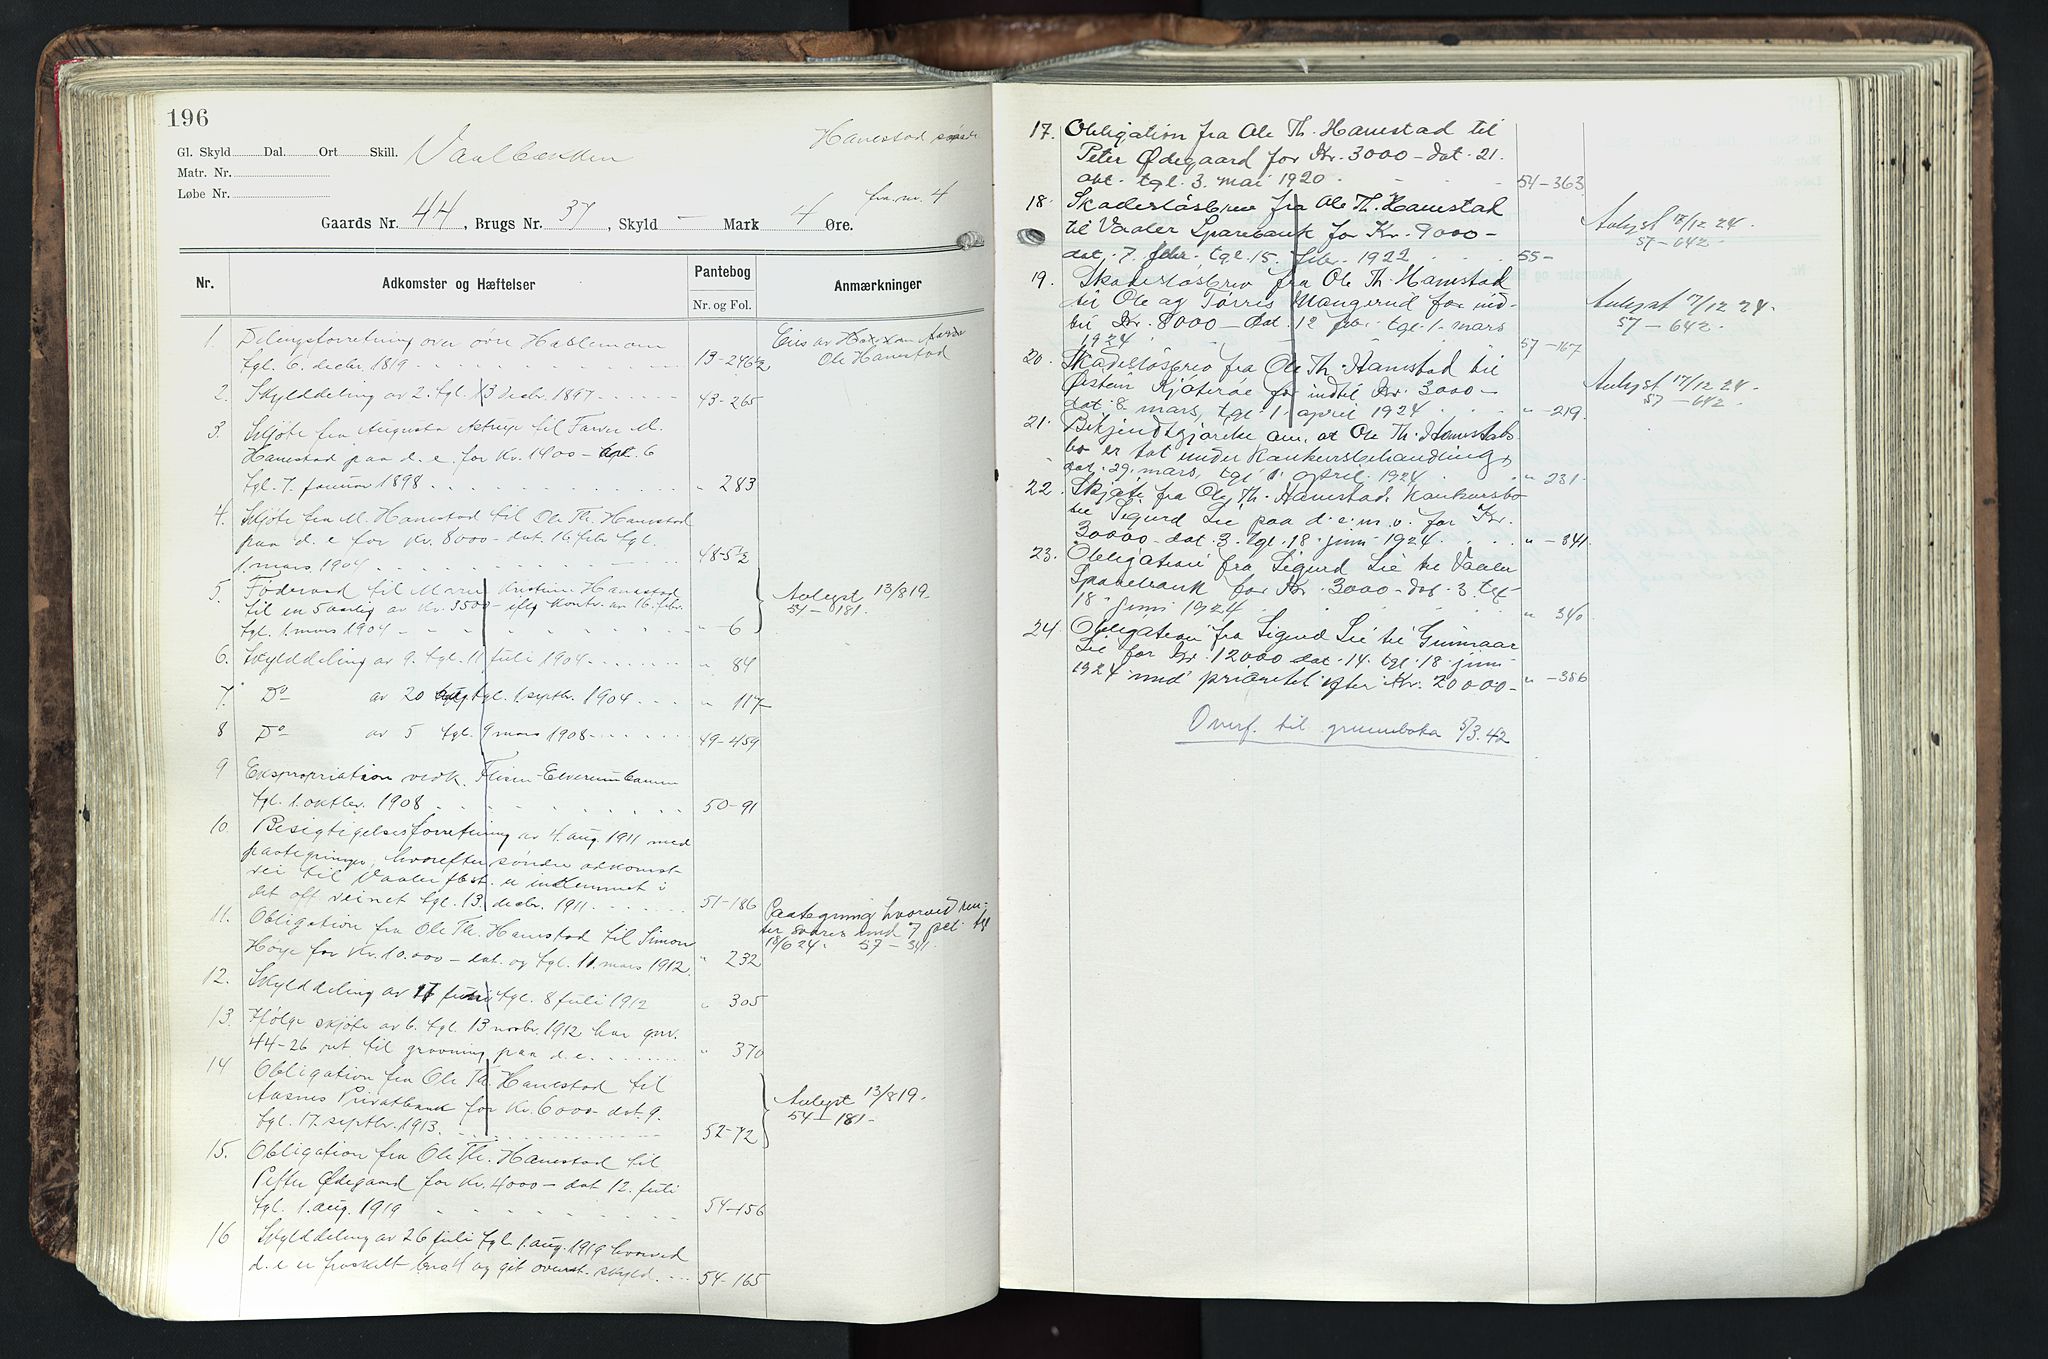 196
Hanestad søndre
Gl. Skyld Dal. Ort Skill. Vaalbækken
Matr. Nr.
Løbe Nr.
fra nr. 4
Gaards Nr. 44, Brugs Nr. 37, Skyld — Mark 4 Øre.
Nr. Adkomster og Hæftelser Pantebog Nr. og Fol. Anmærkninger
1. Delingsforretning over øvre Hablemoen
tgl. 6. decbr. 1819 13-246½ Eies av
Ole Hanestad
2. Skylddeling av 2. tgl. 13 decbr. 1897 43-265
3. Skjøte fra Augusta Astrup til Tarver M.
Hanestad paa d. e. for Kr. 1400 – dat. 6
tgl. 7. januar 1898 " 283
4. Skjøte fra M. Hanestad til Ole Th. Hanestad
paa d. e for Kr. 8000 – dat. 16 febr tgl.
1. mars 1904 48-5½
5. Føderaad til Maren Kristine Hanestad
til en 5 aarlig av Kr. 3500 – iflg kontr. av 16. febr. Avlyst 13/8 19.
tgl. 1. mars 1904 " – 6 54 – 181.
6. Skylddeling av 9. tgl. 11 juli 1904 " 84
7. Do av 20 aug tgl. 1. septbr. 1904 " 117
8 Do av 5 tgl. 9 mars 1908 49-459
9 Ekspropriation vedk. Flisen-Elverumbanen
tgl. 1. oktbr. 1908 50-91
10. Besigtigelsesforretning av 4. aug. 1911 med
paategninger, hvorefter søndre adkomst-
vei til Vaaler st. er indlemmet i
det off veinet tgl. 13. decbr. 1911 51-186
11. Obligation fra Ole Th. Hanestad til Simon Paategning hvorved ren-
ter svares med 7 pct. tgl
Hoye for Kr. 10.000 – dat. og tgl. 11. mars 1912. " 232 18/6 24. 57 – 341.
12. Skylddeling av 17 juni tgl. 8 juli 1912 " 305
13. Ifølge skjøte av 6. tgl. 13 novbr. 1912 har gnr.
44-26 ret til gravning paa d. e. " 370
14 Obligation fra Ole Th. Hanestad til
Aasnes Privatbank for Kr. 6000 – dat. 9. Avlyst 13/8 19.
tgl. 17. septbr. 1913. 52-72 54 – 181 –
15. Obligation fra Ole Th. Hanestad til
Peter Ødegaard for Kr. 4000 – dat 12. juli
tgl. 1. aug. 1919 54-156
16 Skylddeling av 26 juli tgl. 1. aug. 1919 hvorved
d. e er fraskilt bnr. 4 og git ovenst. skyld. 54-165
17. Obligation fra Ole Th. Hanestad til
Peter Ødegaard for Kr. 3000 – dat. 21.
okt. tgl. 3. mai 1920 54-363
18. Skadesløsbrev fra Ole Th. Hanestad Avlyst 17/12 24.
til Vaaler Sparebank for Kr. 9000 – 57 – 642.
dat. 7. febr. tgl. 15. febr. 1922 55-
19. Skadesløsbrev fra Ole Th. Hanestad
til Ole og Torris Mangerud for ind- Avlyst 17/12 24.
til Kr. 8000 – dat. 12 febr. tgl. 1. mars 57 – 642.
1924 57-167
20. Skadesløsbrev fra Ole Th. Hanestad til
Østein Kjøterøe for indtil Kr. 3000 – Avlyst 17/12 24.
dat. 8. mars, tgl. 1. april 1924 " – 219. 57 – 642.
21. Bekjendtgjørelse om, at Ole Th. Hanestads
bo er tat under konkursbehandling,
dat. 29. mars, tgl. 1. april 1924 " – 231.
22. Skjøte fra Ole Th. Hanestads konkursbo
til Sigurd Lie paa d. e. m. v. for Kr.
30000 – dat. 3. tgl. 18. juni 1924. " – 341.
23. Obligation fra Sigurd Lie til Vaaler
Sparebank for Kr. 3000 – dat. 3. tgl.
18. juni 1924 " 340
24. Obligation fra Sigurd Lie til Gunnar
Lie for Kr. 12000 dat. 14. tgl. 18. juni
1924 med prioritet efter Kr. 20000 – " – 386
Overf. til grunnboka 5/3. 42